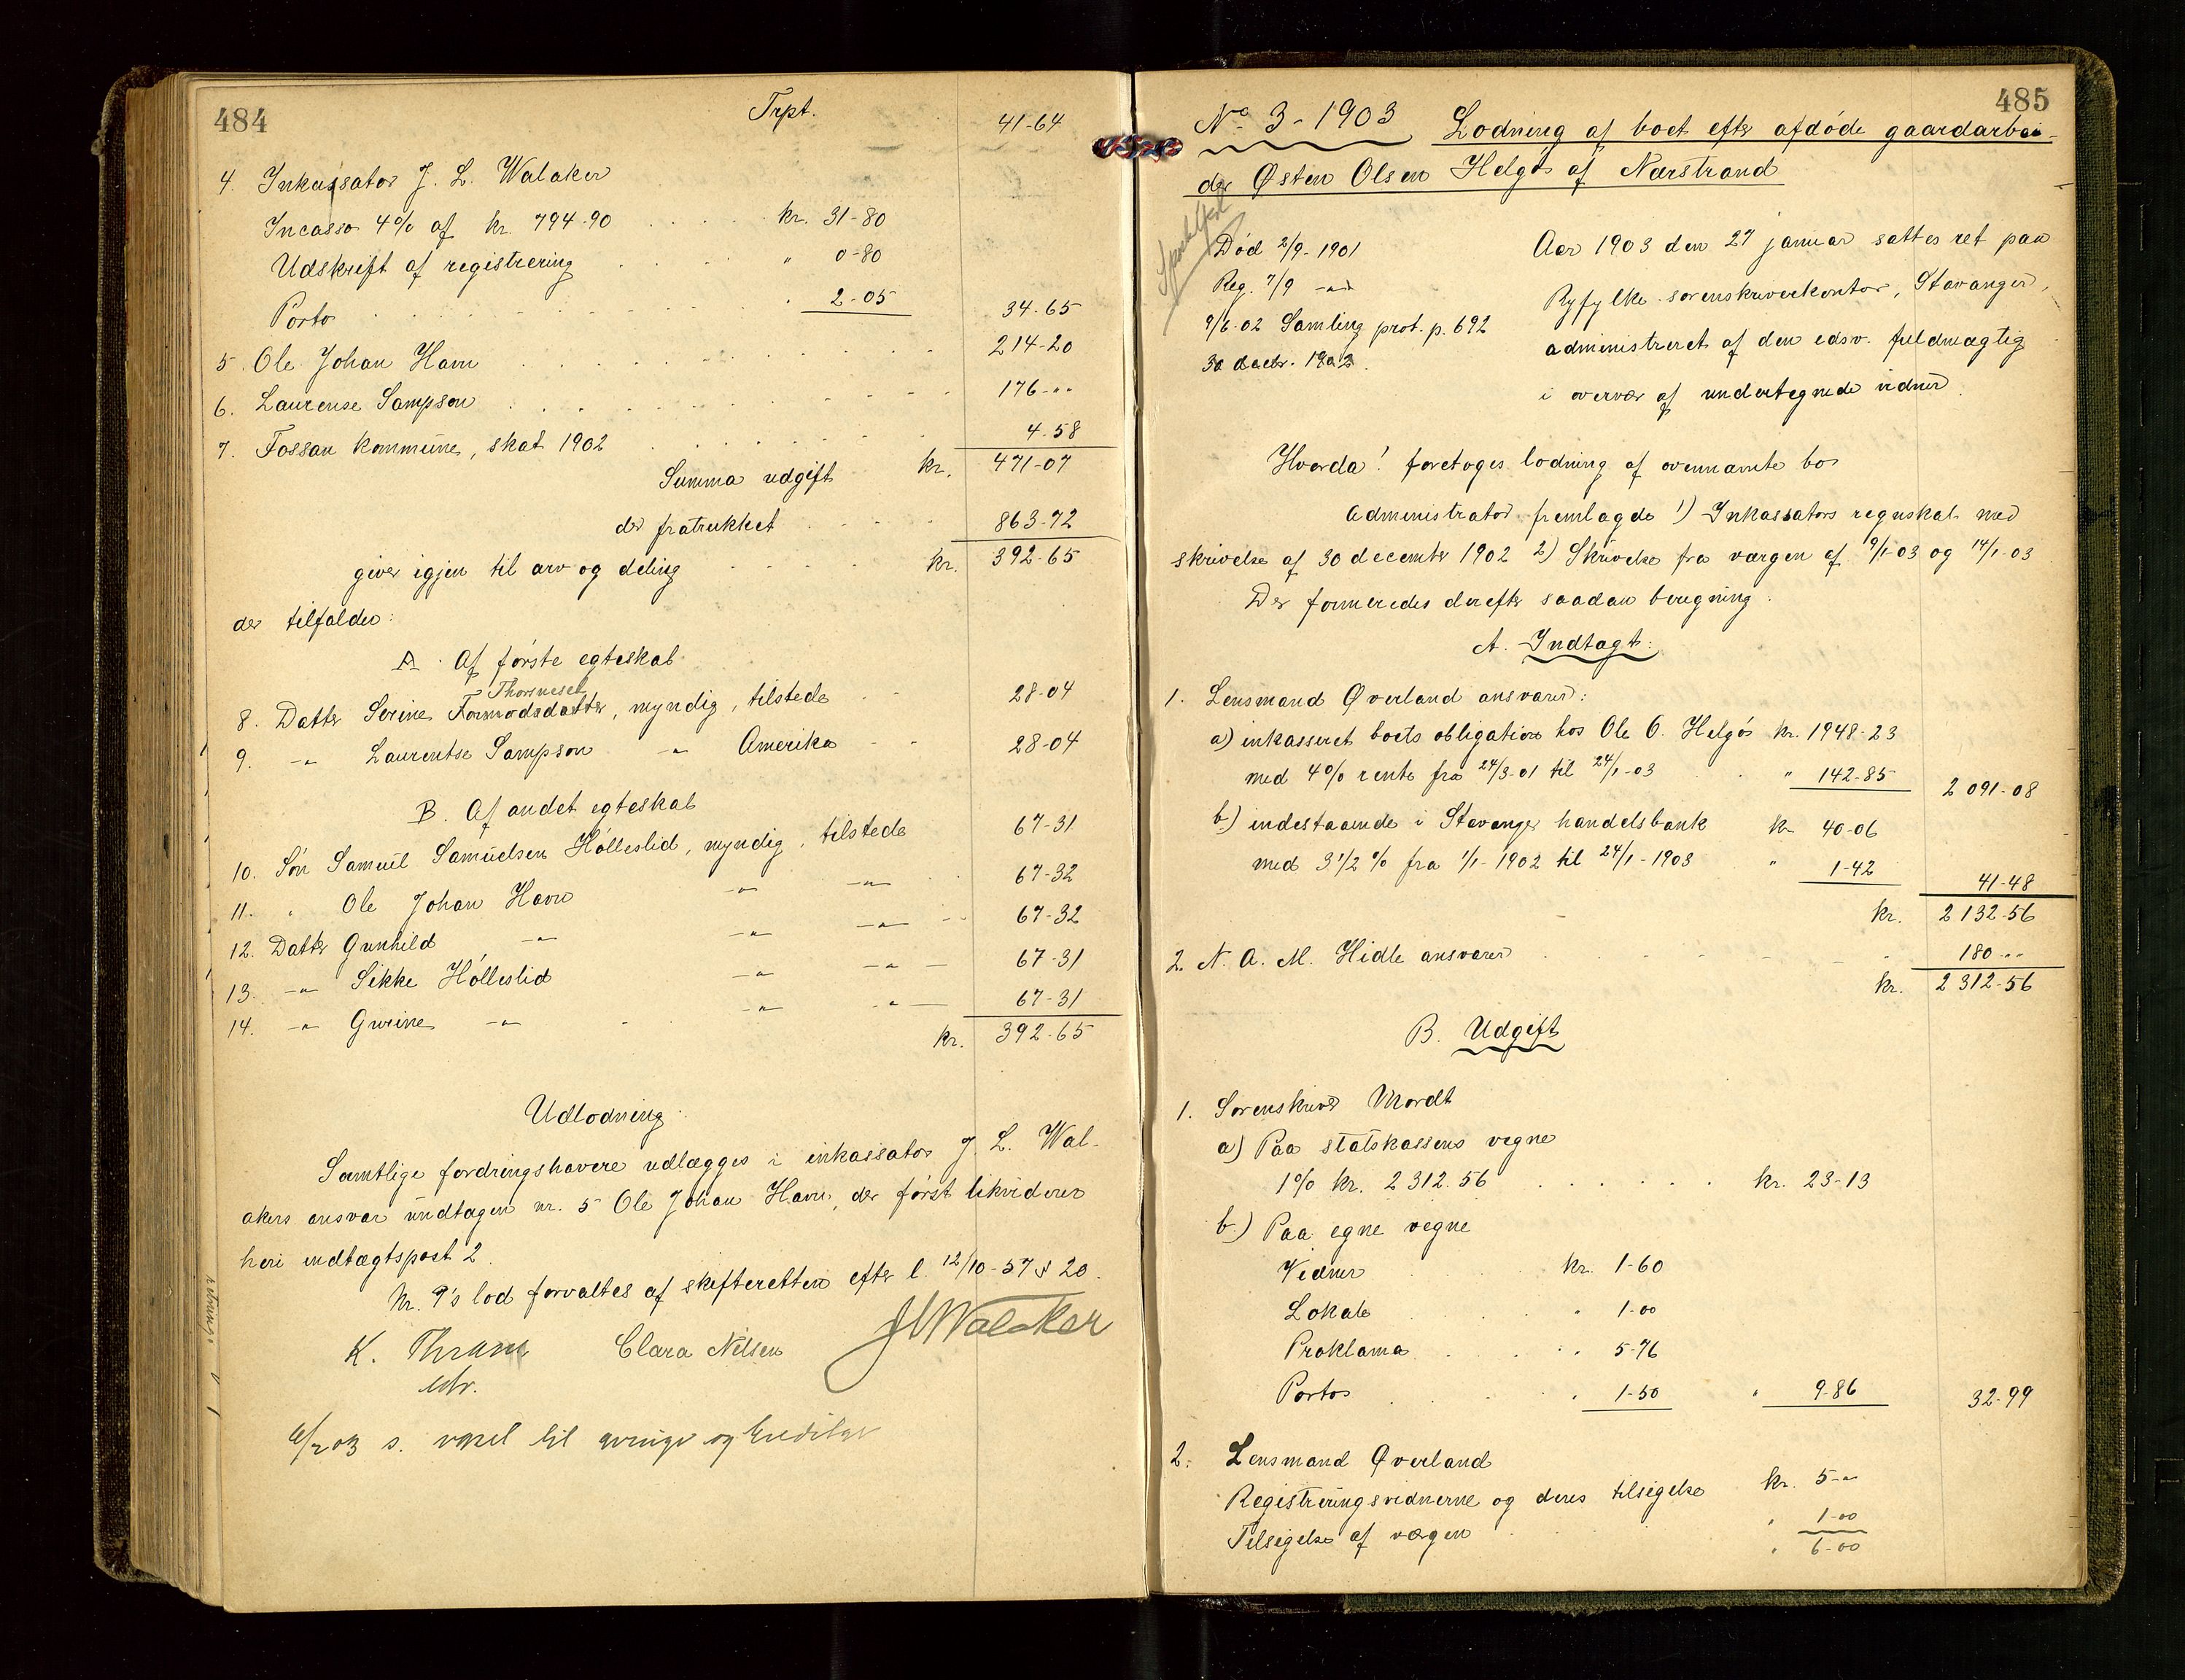 484
Trpt. 41-64
4. Inkassator J. L. Walaker
Incasso 4% af kr. 794-90 kr. 31-80
Udskrift af registrering " 0-80
Porto " 2-05 34-65
5. Ole Johan Havn 214-20
6. Laurense Sampson 176-""
7. Fossan kommune, skat 1902 4-58
Summa udgift kr. 471-07
der fratrukket 863-72
giver igjen til arv og deling kr. 392-65
der tilfalder:
A. Af første egteskab
Thorsnesel
8. Datter Serine Tormodsdatter, myndig, tilstede 28-04
9. -"- Laurentse Sampson -"- Amerika 28-04
B. Af andet egteskab
10. Søn Samuel Samuelsen Hølleslid, myndig, tilstede 67-31
11. " Ole Johan Havn -"- -"- 67-32
12. Datter Gunhild -"- -"- -"- 67-32
13. -"- Sikke Hølleslid -"- -"- 67-31
14. -"- Gurine -"- -"- -"- 67-31
kr. 392-65
Udlodning:
Samtlige fordringshavere udlægges i inkassator J. L. Wal-
akers ansvar undtagen nr. 5 Ole Johan Havn, der først likviderer
heri indtægtspost 2.
Nr. 9's lod forvaltes af skifteretten efter l. 12/10-57 § 20.
K. Thrane Clara Nilsen JLWalaker
6/2 03 s. til og
485
No 3-1903 Lodning af boet efter afdøde gaardarbei-
der Østen Olsen Helgø af Nærstrand
Død 2/9-1901
Reg. 7/9 -"-
9/6-02 Samling prot. p. 692
30 decbr. 1902.
Aar 1903 den 27 januar sattes ret paa
Ryfylke sorenskriverkontor, Stavanger,
administreret af den edsv. fuldmægtig
i overvær af undertegnede vidner.
Hvorda! foretoges lodning af ovennævnte bo
Administrator fremlagde 1) Inkassators regnskab med
skrivelse af 30 december 1902 2) Skrivelse fra værgen af 9/1-03 og 14/1-03
Der formeredes derefter saadan beregning:
A. Indtægt:
1. Lensmand Øverland ansvarer:
a) inkasseret boets obligation hos Ole O. Helgø kr. 1948-23
med 4% rente fra 24/3-01 til 24/1-03 " 142-85 2 091-08
b) indestaaende i Stavanger handelsbank kr 40-06
med 3 1/2 % fra 1/1-1902 til 24/1-1903 " 1-42 41-48
kr. 2 132-56
2. N. A. M. Hidle ansvarer " 180-""
kr. 2 312-56
B. Udgift
1. Sorenskriver Mordt
a) Paa statskassens vegne
1% kr. 2 312.56 kr. 23-13
b) Paa egne vegne
Vidner kr. 1-60
Lokale " 1-00
Proklama " 5-76
Portos " 1-50 " 9-86 32-99
2. Lensmand Øverland
Registreringsvidnerne og deres tilsigelse kr. 5-"
Tilsigelse af værgen " 1-00
" 6-00